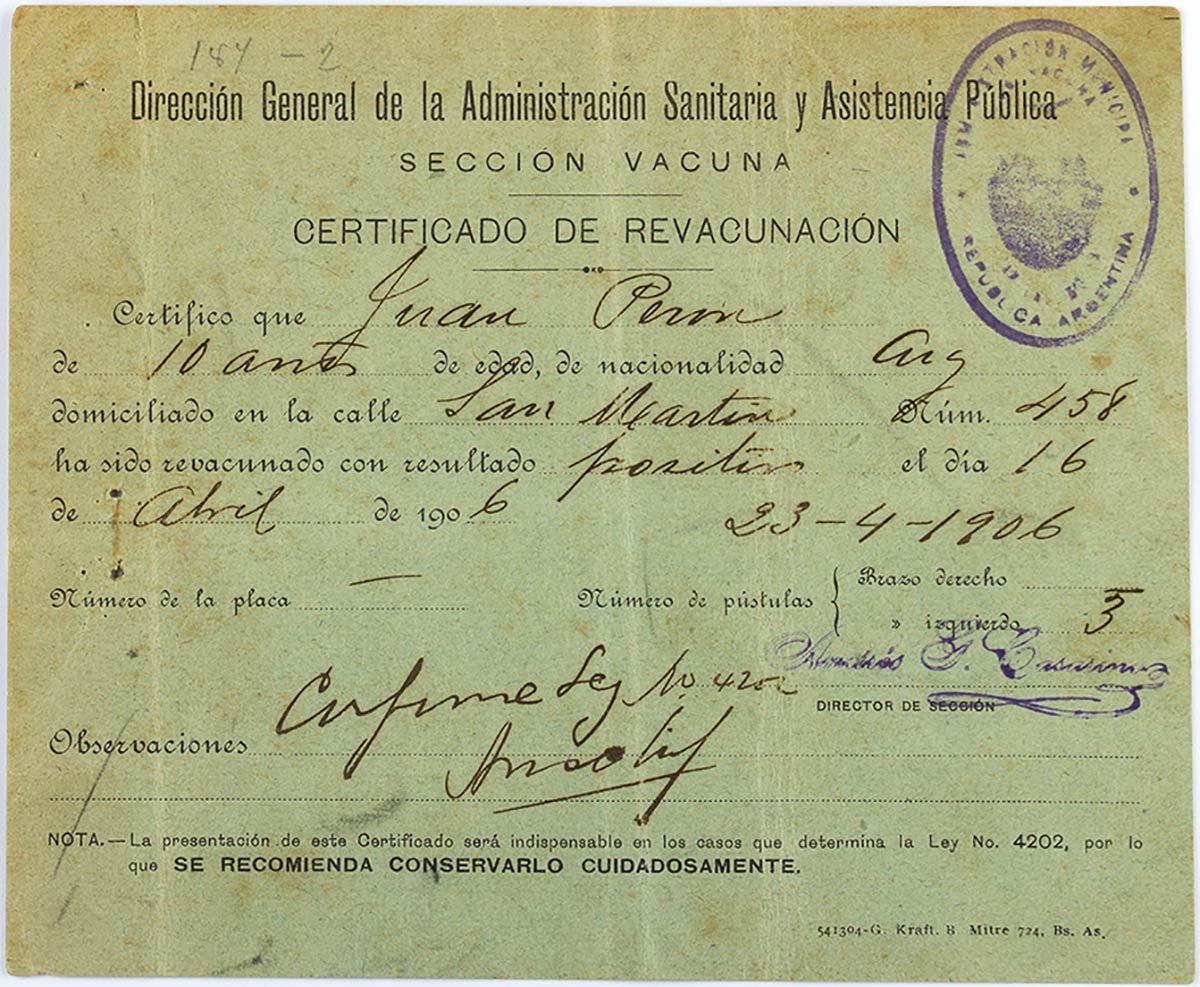 184 - 2
Dirección General de la Administración Sanitaria y Asistencia Pública
SECCIÓN VACUNA
CERTIFICADO DE REVACUNACIÓN
REPÚBLICA ARGENTINA
Certifico que Juan Peron
de 10 años de edad, de nacionalidad Arg
domiciliado en la calle San Martin Núm. 458
ha sido revacunado con resultado positivo el día 16
de Abril de 1906
23-4-1906
Número de la placa —
Número de pústulas { Brazo derecho
» izquierdo 3
DIRECTOR DE SECCIÓN
Conforme Ley No. 4202
Observaciones
NOTA.—La presentación de este Certificado será indispensable en los casos que determina la Ley No. 4202, por lo
que SE RECOMIENDA CONSERVARLO CUIDADOSAMENTE.
541304-G. Kraft. B Mitre 724, Bs. As.